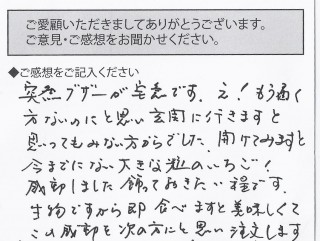 ご愛顧いただきましてありがとうございます。
ご意見・ご感想をお聞かせください。
◆ご感想をご記入ください
突然ブザーが宅急です。え！もう届く
方ないのにと思い玄関に行きますと
思ってもみない方からでした。開けてみますと
今までにない大きな粒のいちご！
感動しました 飾っておきたい程です。
生物ですから即 食べますと美味しくて
この感動を次の方にと思い注文します